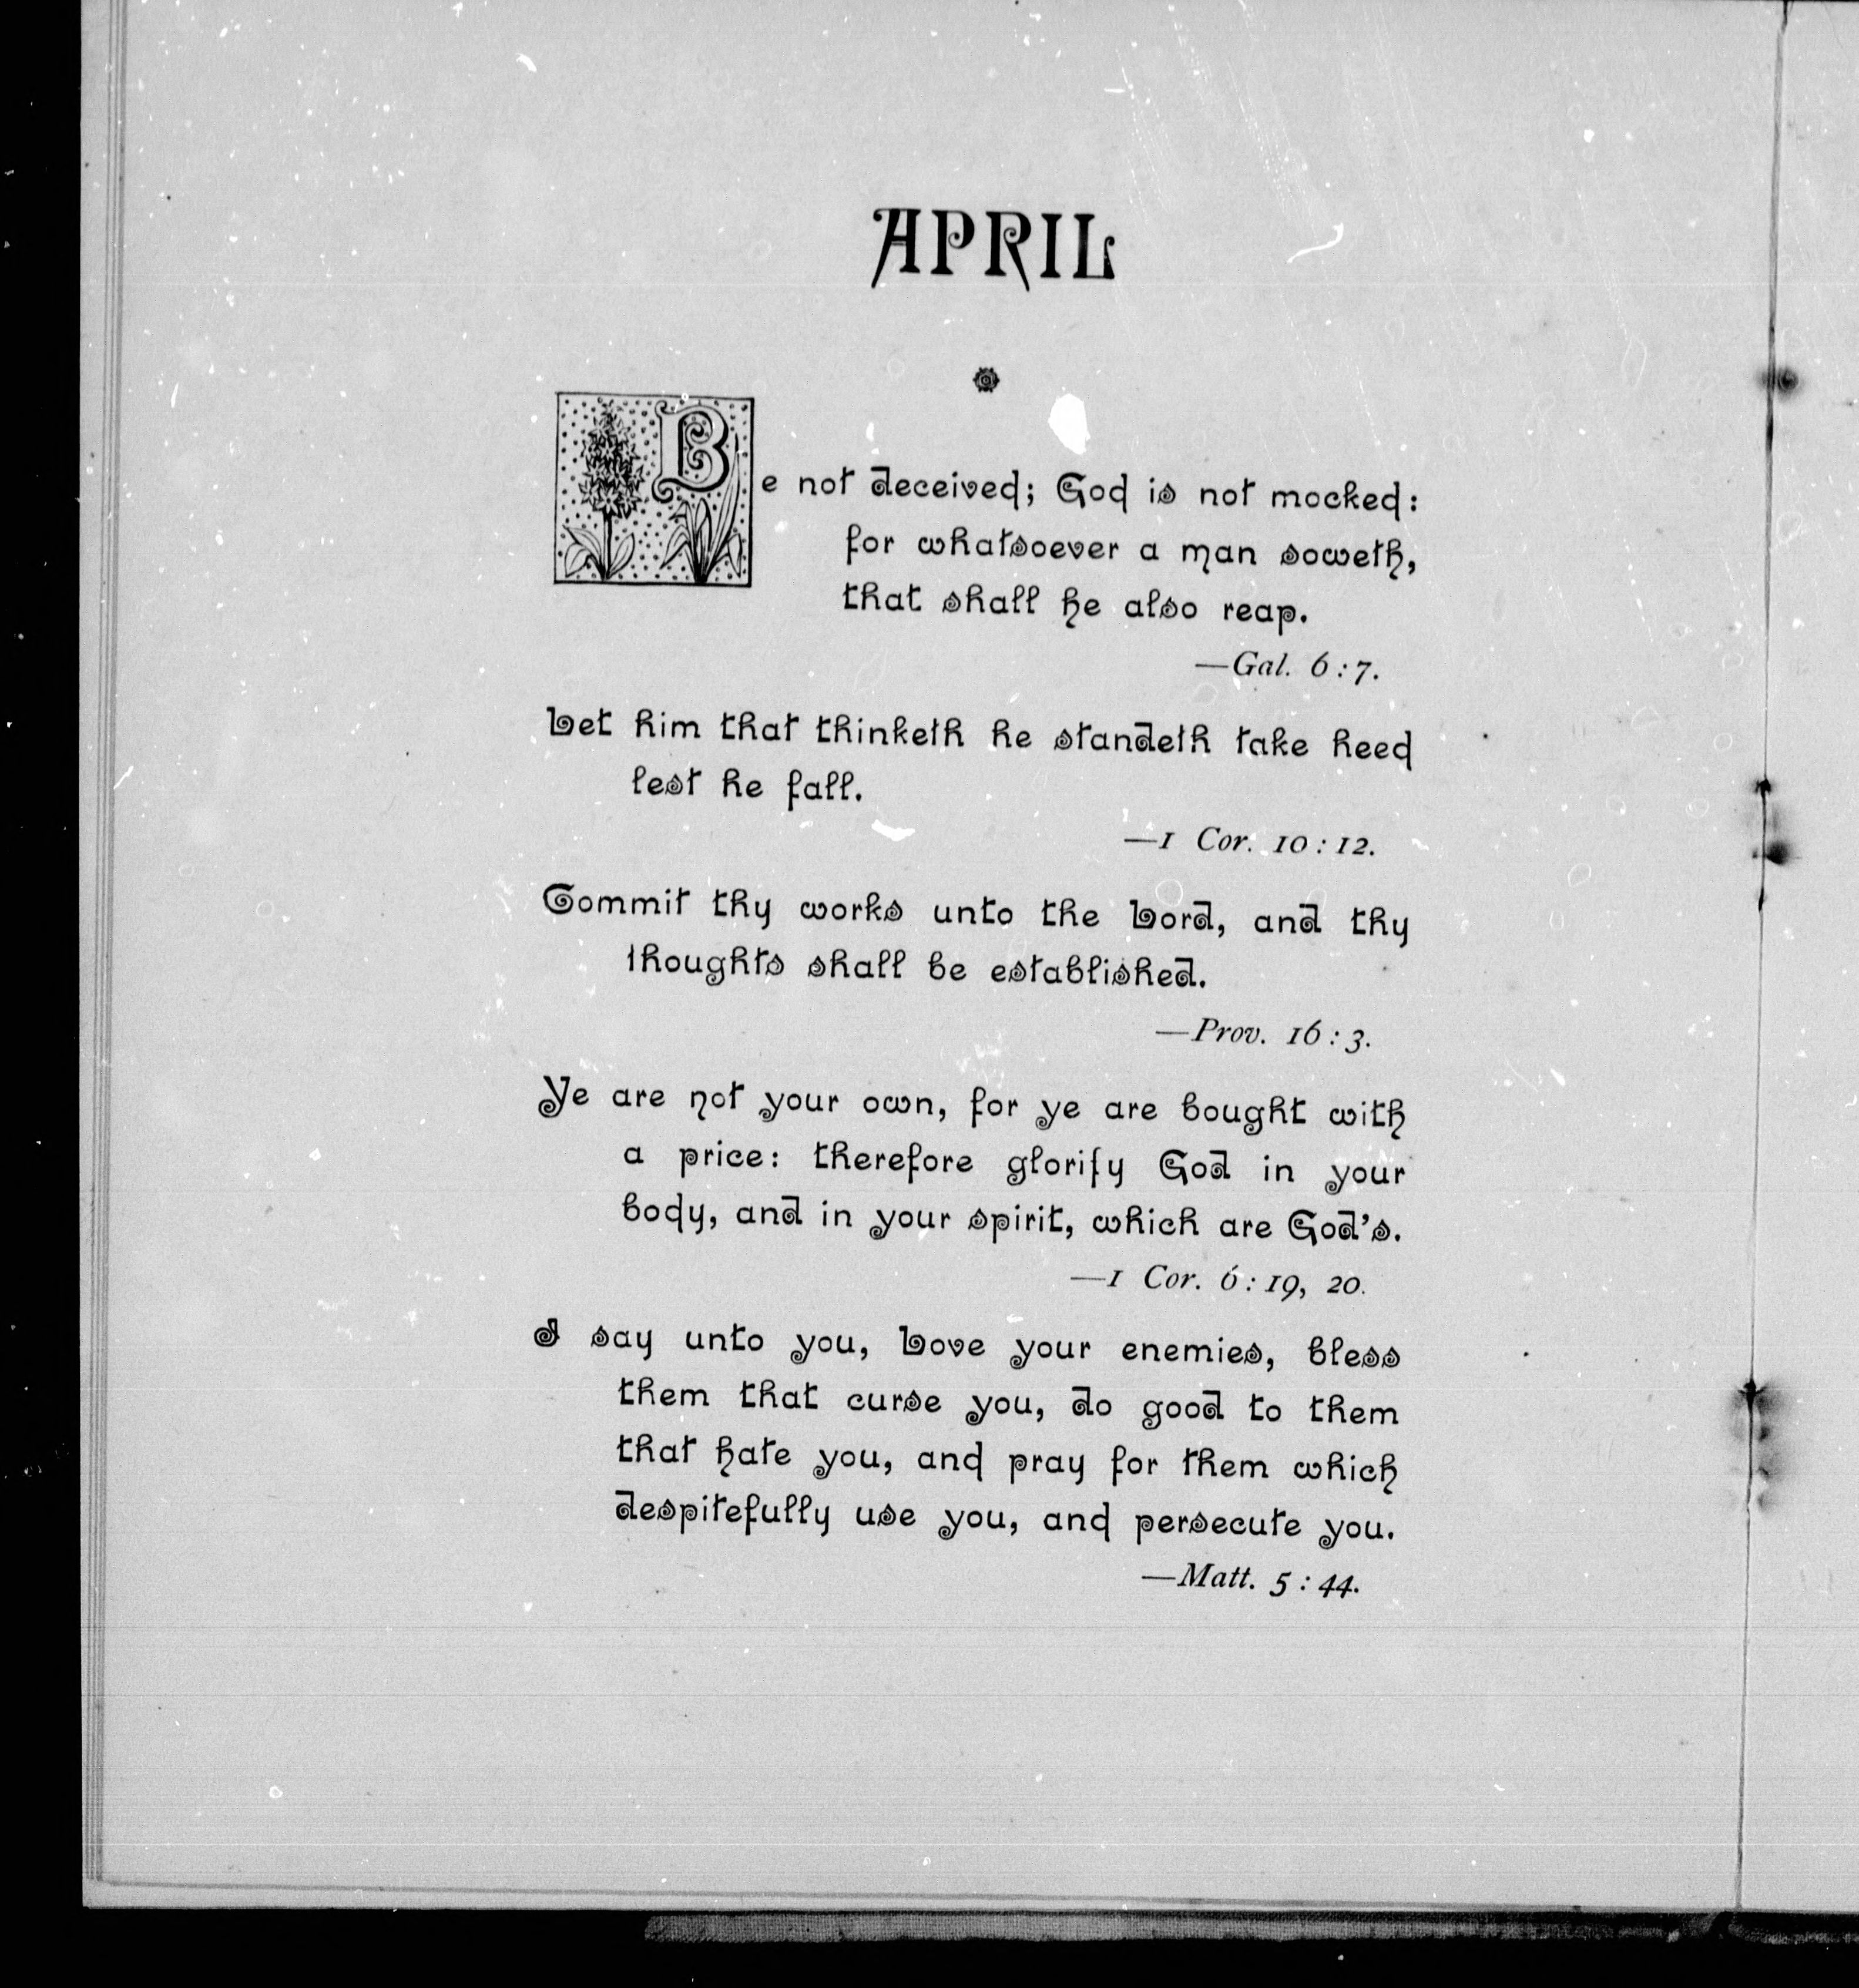 APRIL
Be not deceived; God is not mocked:
for whatsoever a man soweth,
that shall he also reap.
—Gal. 6:7.
Let him that thinketh he standeth take heed
lest he fall.
—1 Cor. 10:12.
Commit thy works unto the Lord, and thy
thoughts shall be established.
—Prov. 16:3.
Ye are not your own, for ye are bought with
a price: therefore glorify God in your
body, and in your spirit, which are God's.
—1 Cor. 6:19, 20.
I say unto you, Love your enemies, bless
them that curse you, do good to them
that hate you, and pray for them which
despitefully use you, and persecute you.
—Matt. 5:44.